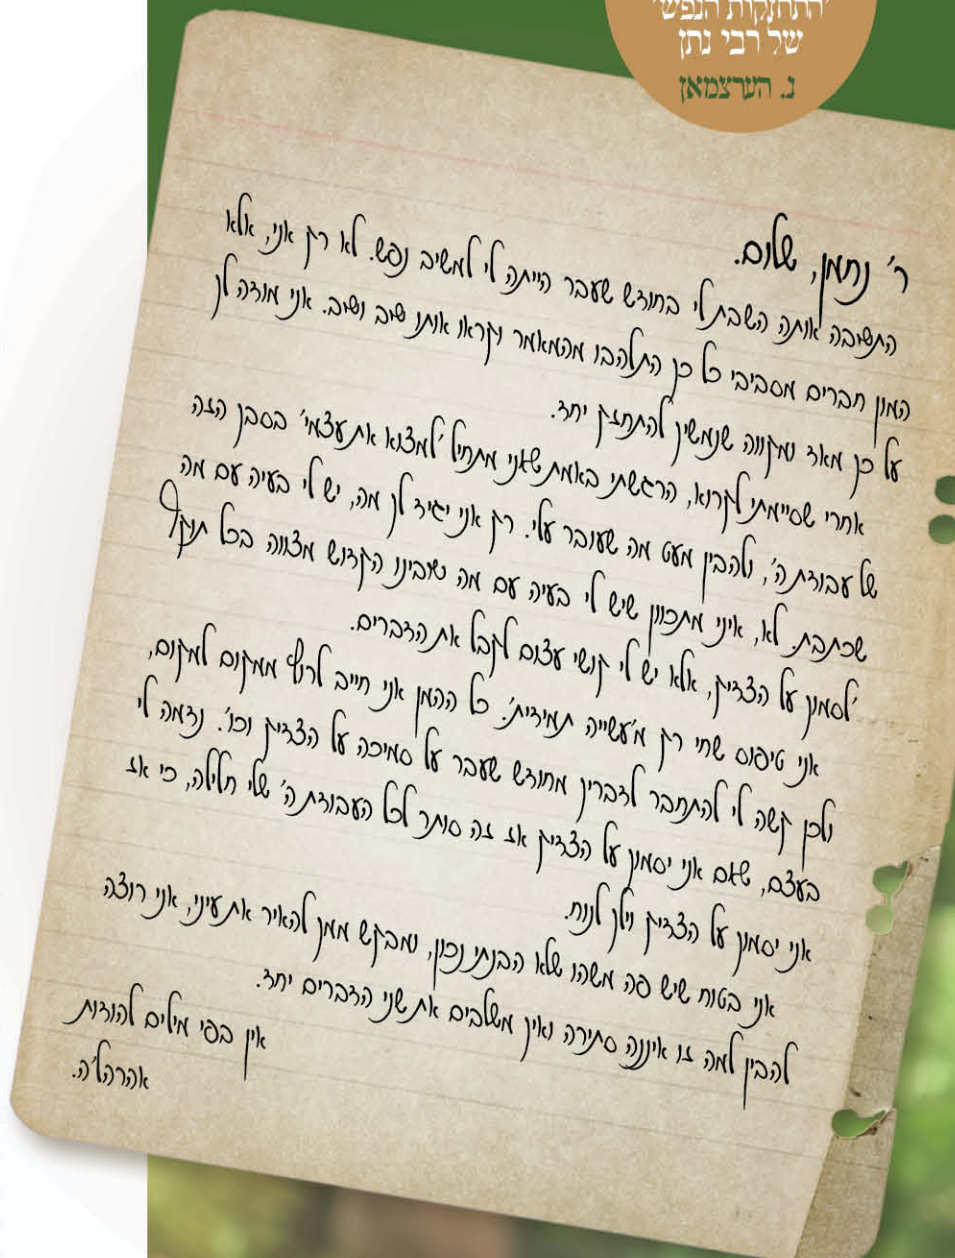 'התחזקות הנפש'
של רבי נתן
נ. הערצמאן
ר' נחמן, שלום.
התשובה אותה השבת לי בחודש שעבר הייתה לי למשיב נפש. לא רק אני, אלא
המון חברים מסביבי כל כך התלהבו מהמאמר וקראו אותו שוב ושוב. אני מודה לך
על כך מאד ומקווה שנמשיך להתחזק יחד.
אחרי שסיימתי לקרוא, הרגשתי באמת שאני מתחיל 'למצוא את עצמי' בסבך הזה
של עבודת ה', ולהבין מעט מה שעובר עלי. רק אני יגיד לך מה, יש לי בעיה עם מה
שכתבת. לא, איני מתכוון שיש לי בעיה עם מה שרבינו הקדוש מצווה בכל תוקף
'לסמוך על הצדיק, אלא יש לי קושי עצום לקבל את הדברים.
אני טיפוס שחי רק מ'עשייה תמידית'. כל הזמן אני חייב לרוץ ממקום למקום,
ולכן קשה לי להתחבר לדבריך מחודש שעבר על סמיכה על הצדיק וכו'. נדמה לי
בעצם, שאם אני יסמוך על הצדיק אז זה סותר לכל העבודת ה' שלי חלילה, כי אז
אני יסמוך על הצדיק וילך לנוח.
אני בטוח שיש פה משהו שלא הבנתי נכון, ומבקש ממך להאיר את עיני, אני רוצה
להבין למה זו איננה סתירה ואיך משלבים את שני הדברים יחד.
אין בפי מילים להודות
אהרהל'ה.